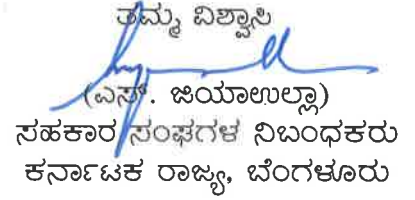 ತಮ್ಮ ವಿಶ್ವಾಸಿ
(ಎಸ್. ಜಿಯಾಉಲ್ಲಾ)
ಸಹಕಾರ ಸಂಘಗಳ ನಿಬಂಧಕರು
ಕರ್ನಾಟಕ ರಾಜ್ಯ, ಬೆಂಗಳೂರು